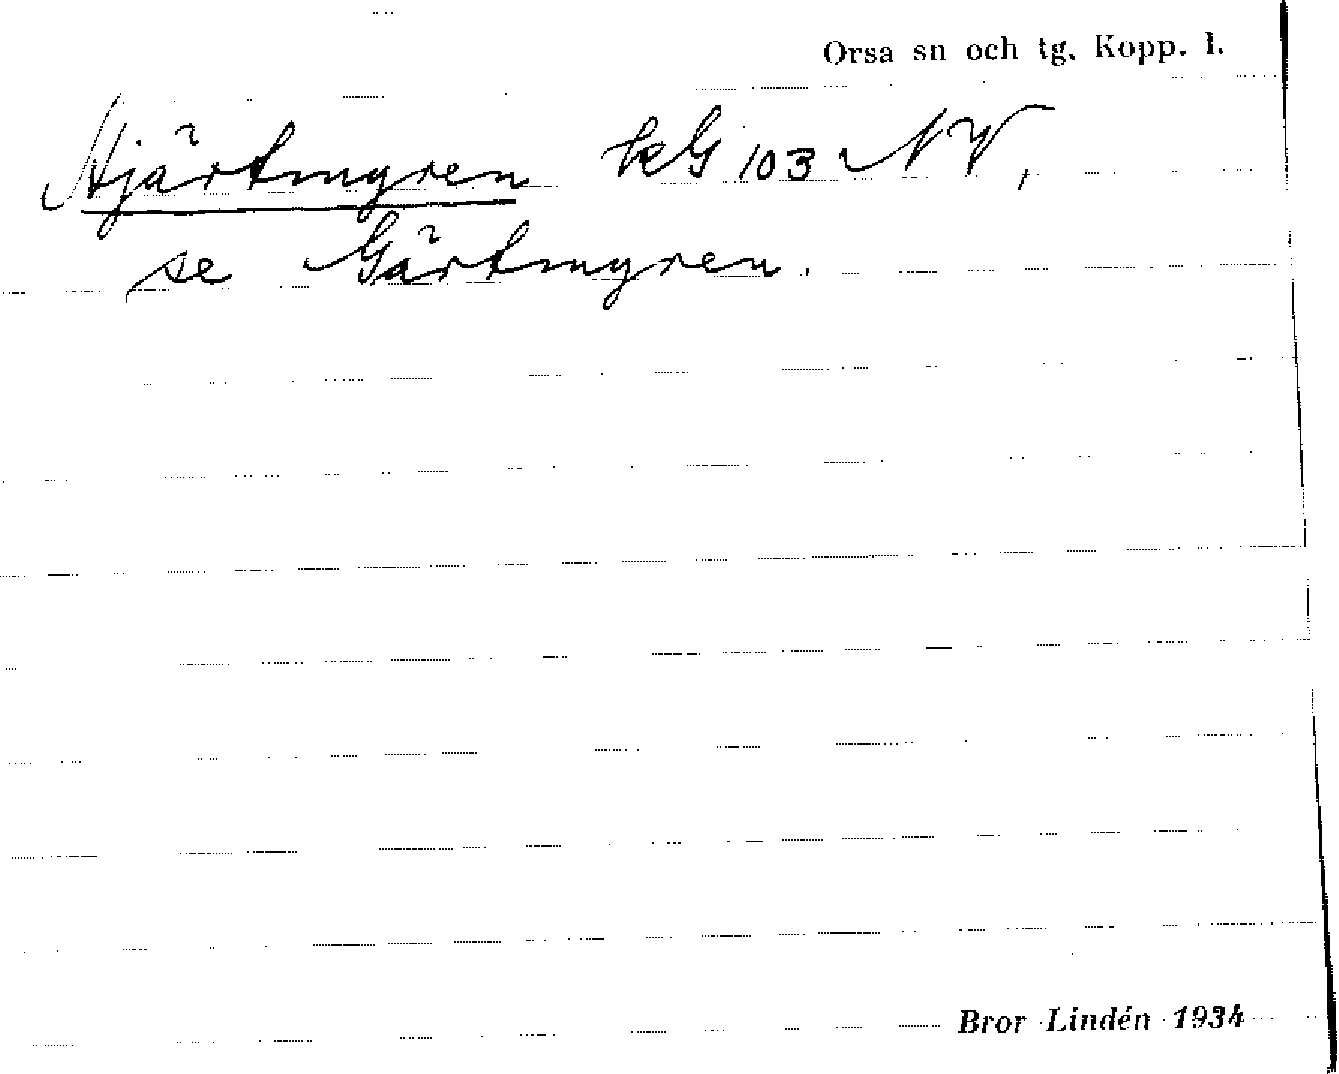 Orsa sn och tg. Kopp. l.
Hjärtmyren kG 103 NV,
se Gärtmyren.
Bror Lindén 1934